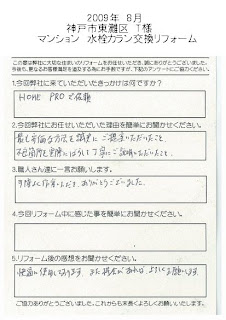 2009年 8月
神戸市東灘区 T様
マンション 水栓カラン交換リフォーム
この度は弊社に大切な住まいのリフォームをお任せいただき、誠にありがとうございました。
今後も、更なるお客様満足を追及する為にお手数ですが、下記のアンケートにご協力ください。
1.今回弊社に来ていただいたきっかけは何ですか?
HOME PROで依頼
2.今回弊社にお任せいただいた理由を簡単にお聞かせください。
最も安価な方法を誠実にご提示いただいたこと
不具合箇所を実際にばらして丁寧にご説明いただいたこと。
3.職人さん達に一言お願いします。
手際よく作業いただき、ありがとうございました。
4.今回リフォーム中に感じた事を簡単にお聞かせください。
5.リフォーム後の感想をお聞かせください。
快適に使用しております。また機会があれば よろしくお願いします。
ご協力ありがとうございました。これからも末長くよろしくお願いいたします。